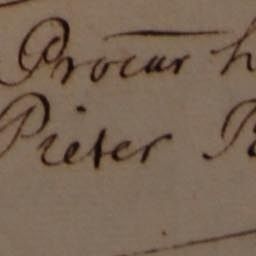 Procur h
Pieter